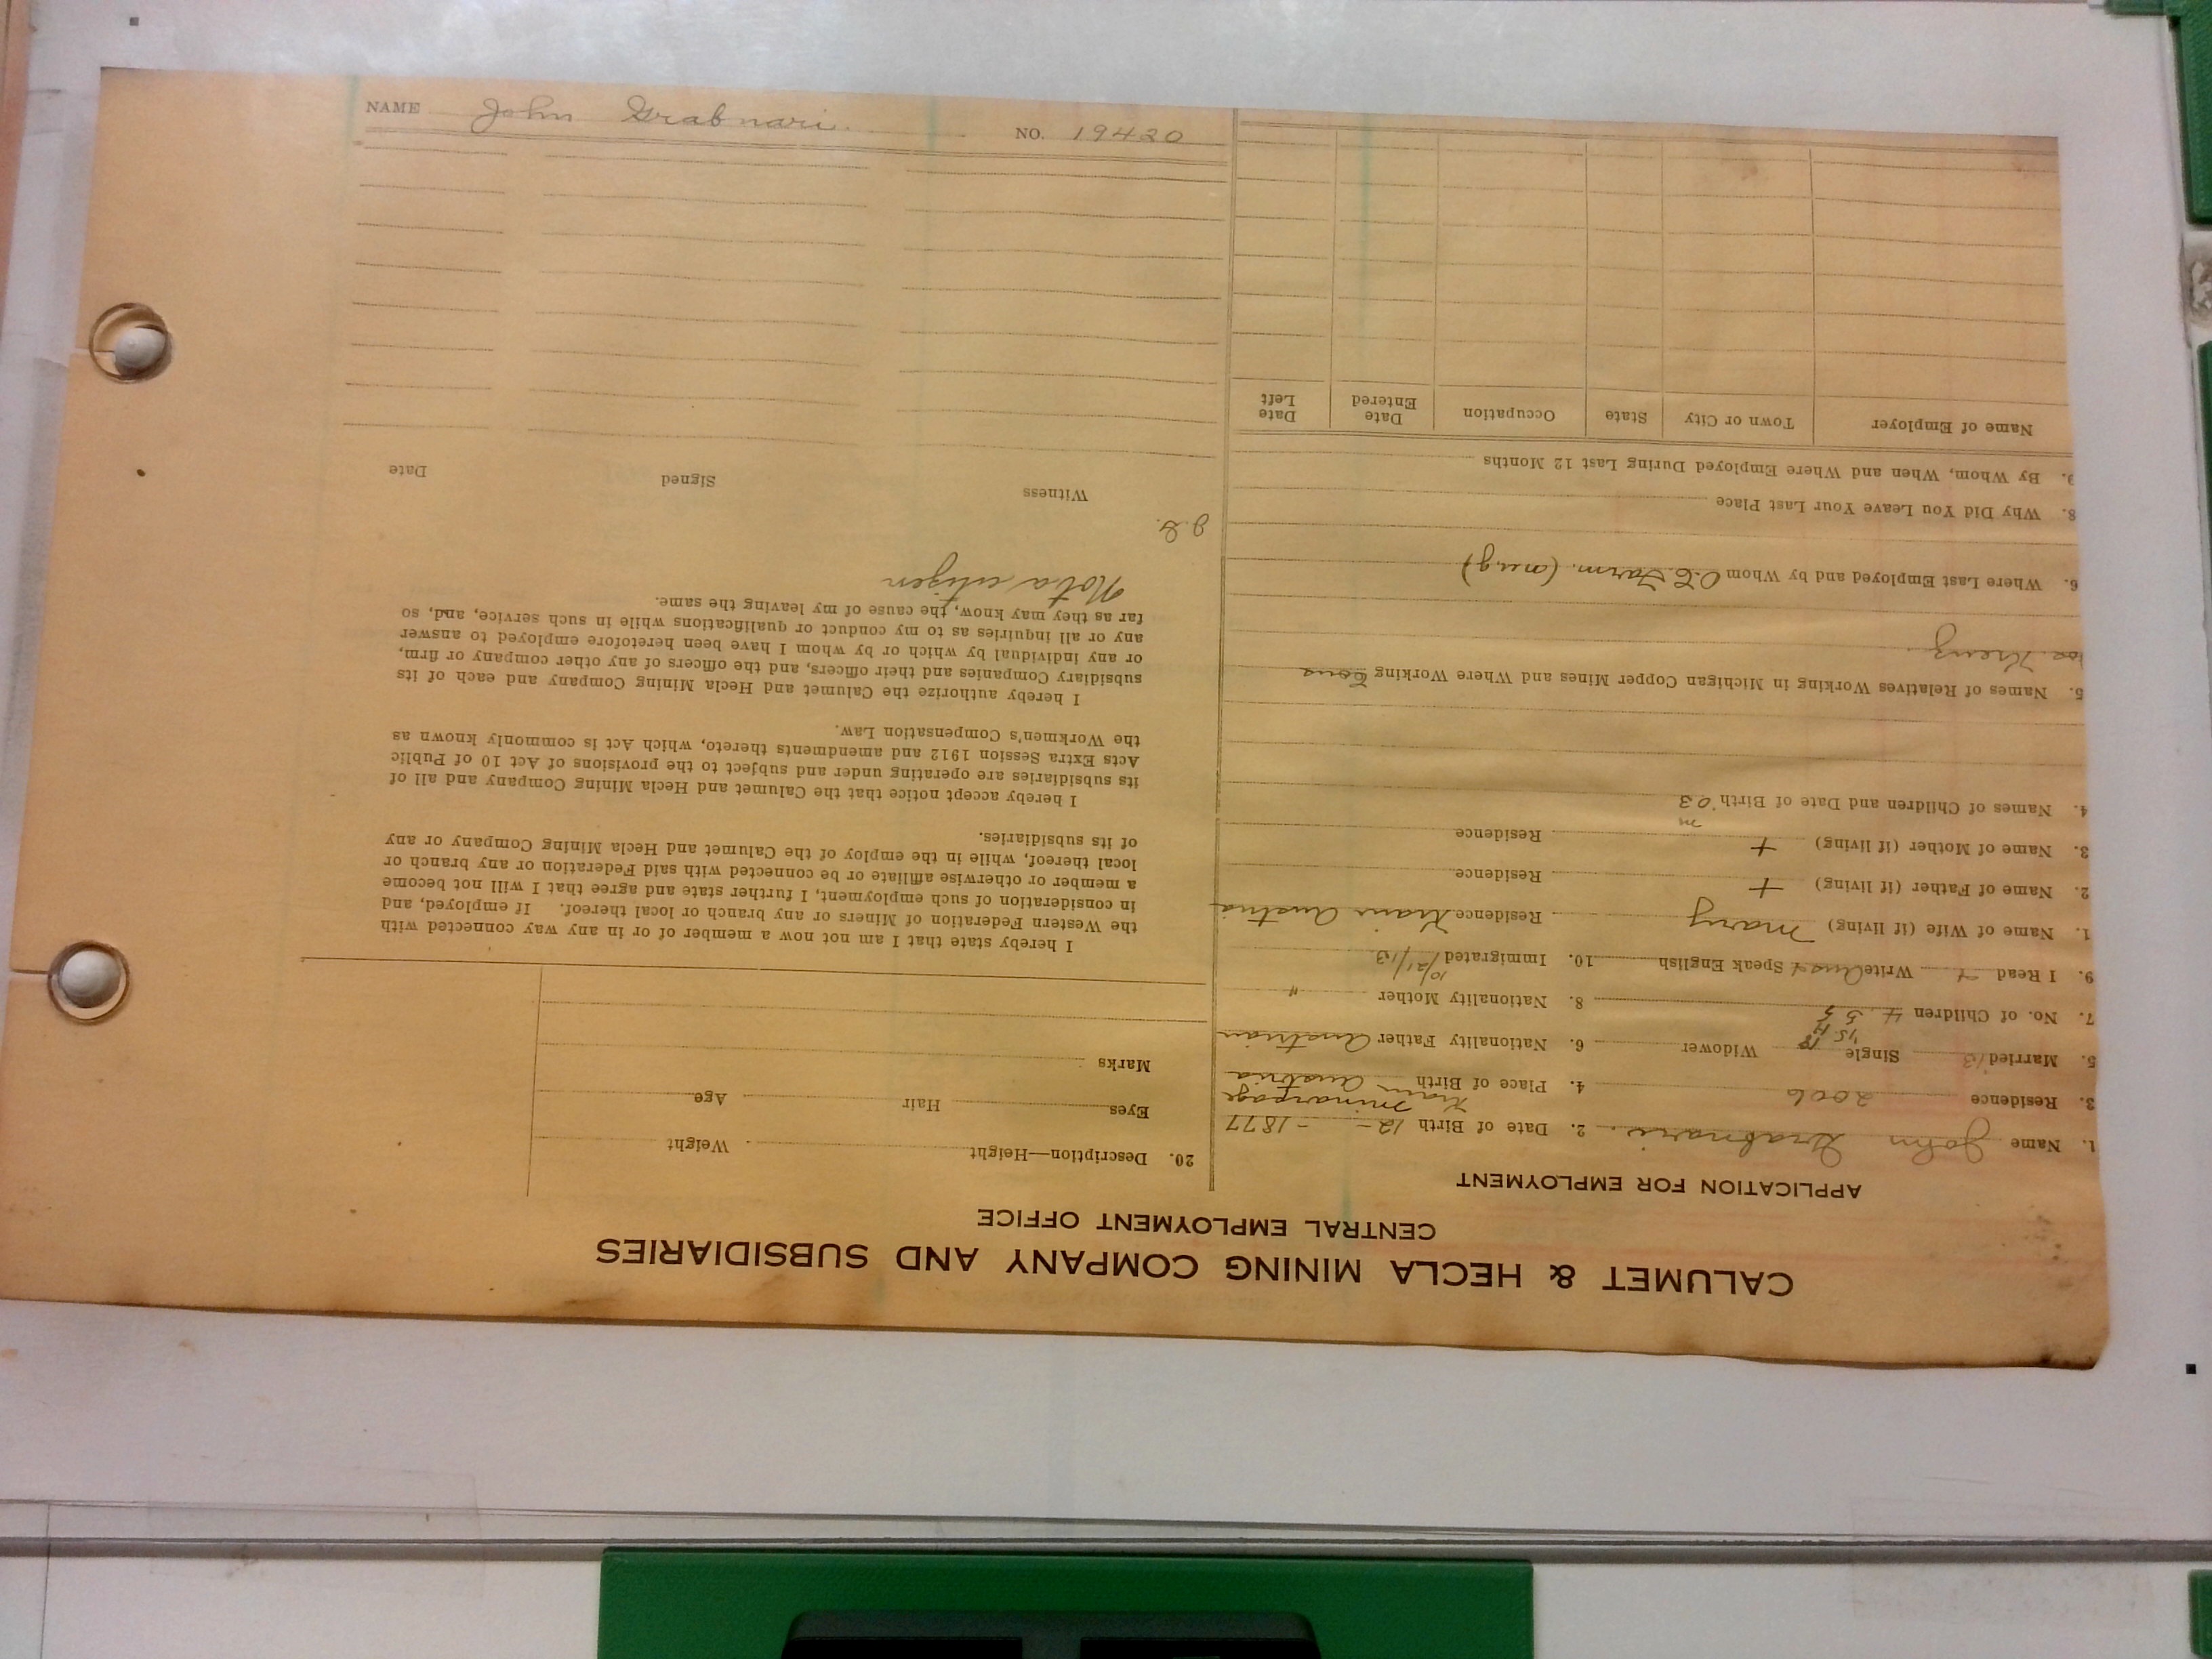 CALUMET & HECLA MINING COMPANY AND SUBSIDIARIES
CENTRAL EMPLOYMENT OFFICE
APPLICATION FOR EMPLOYMENT
1. Name John Grabnari. 2. Date of Birth 12 - - 1877
3. Residence 2006 4. Place of Birth Krain Austria
5. Married '13 Single Widower 6. Nationality Father Austrian
7. No. of Children 4 8. Nationality Mother "
9. I Read + Write Aust Speak English 10. Immigrated 10/21/13.
1. Name of Wife (if living) Mary Residence Krain Austria
2. Name of Father (if living) + Residence
3. Name of Mother (if living) + Residence
4. Names of Children and Date of Birth '03
m
5. Names of Relatives Working in Michigan Copper Mines and Where Working
6. Where Last Employed and by Whom
8. Why Did You Leave Your Last Place
9. By Whom, When and Where Employed During Last 12 Months
Name of Employer Town or City State Occupation Date Entered Date Left
20. Description—Height Weight
Eyes Hair Age
Marks
I hereby state that I am not now a member of or in any way connected with
the Western Federation of Miners or any branch or local thereof. If employed, and
in consideration of such employment, I further state and agree that I will not become
a member or otherwise affiliate or be connected with said Federation or any branch or
local thereof, while in the employ of the Calumet and Hecla Mining Company or any
of its subsidiaries.
I hereby accept notice that the Calumet and Hecla Mining Company and all of
its subsidiaries are operating under and subject to the provisions of Act 10 of Public
Acts Extra Session 1912 and amendments thereto, which Act is commonly known as
the Workmen's Compensation Law.
I hereby authorize the Calumet and Hecla Mining Company and each of its
subsidiary Companies and their officers, and the officers of any other company or firm,
or any individual by which or by whom I have been heretofore employed to answer
any or all inquiries as to my conduct or qualifications while in such service, and, so
far as they may know, the cause of my leaving the same.
Not a citizen
J.G.
Witness Signed Date
NAME John Grabnari. NO. 19420